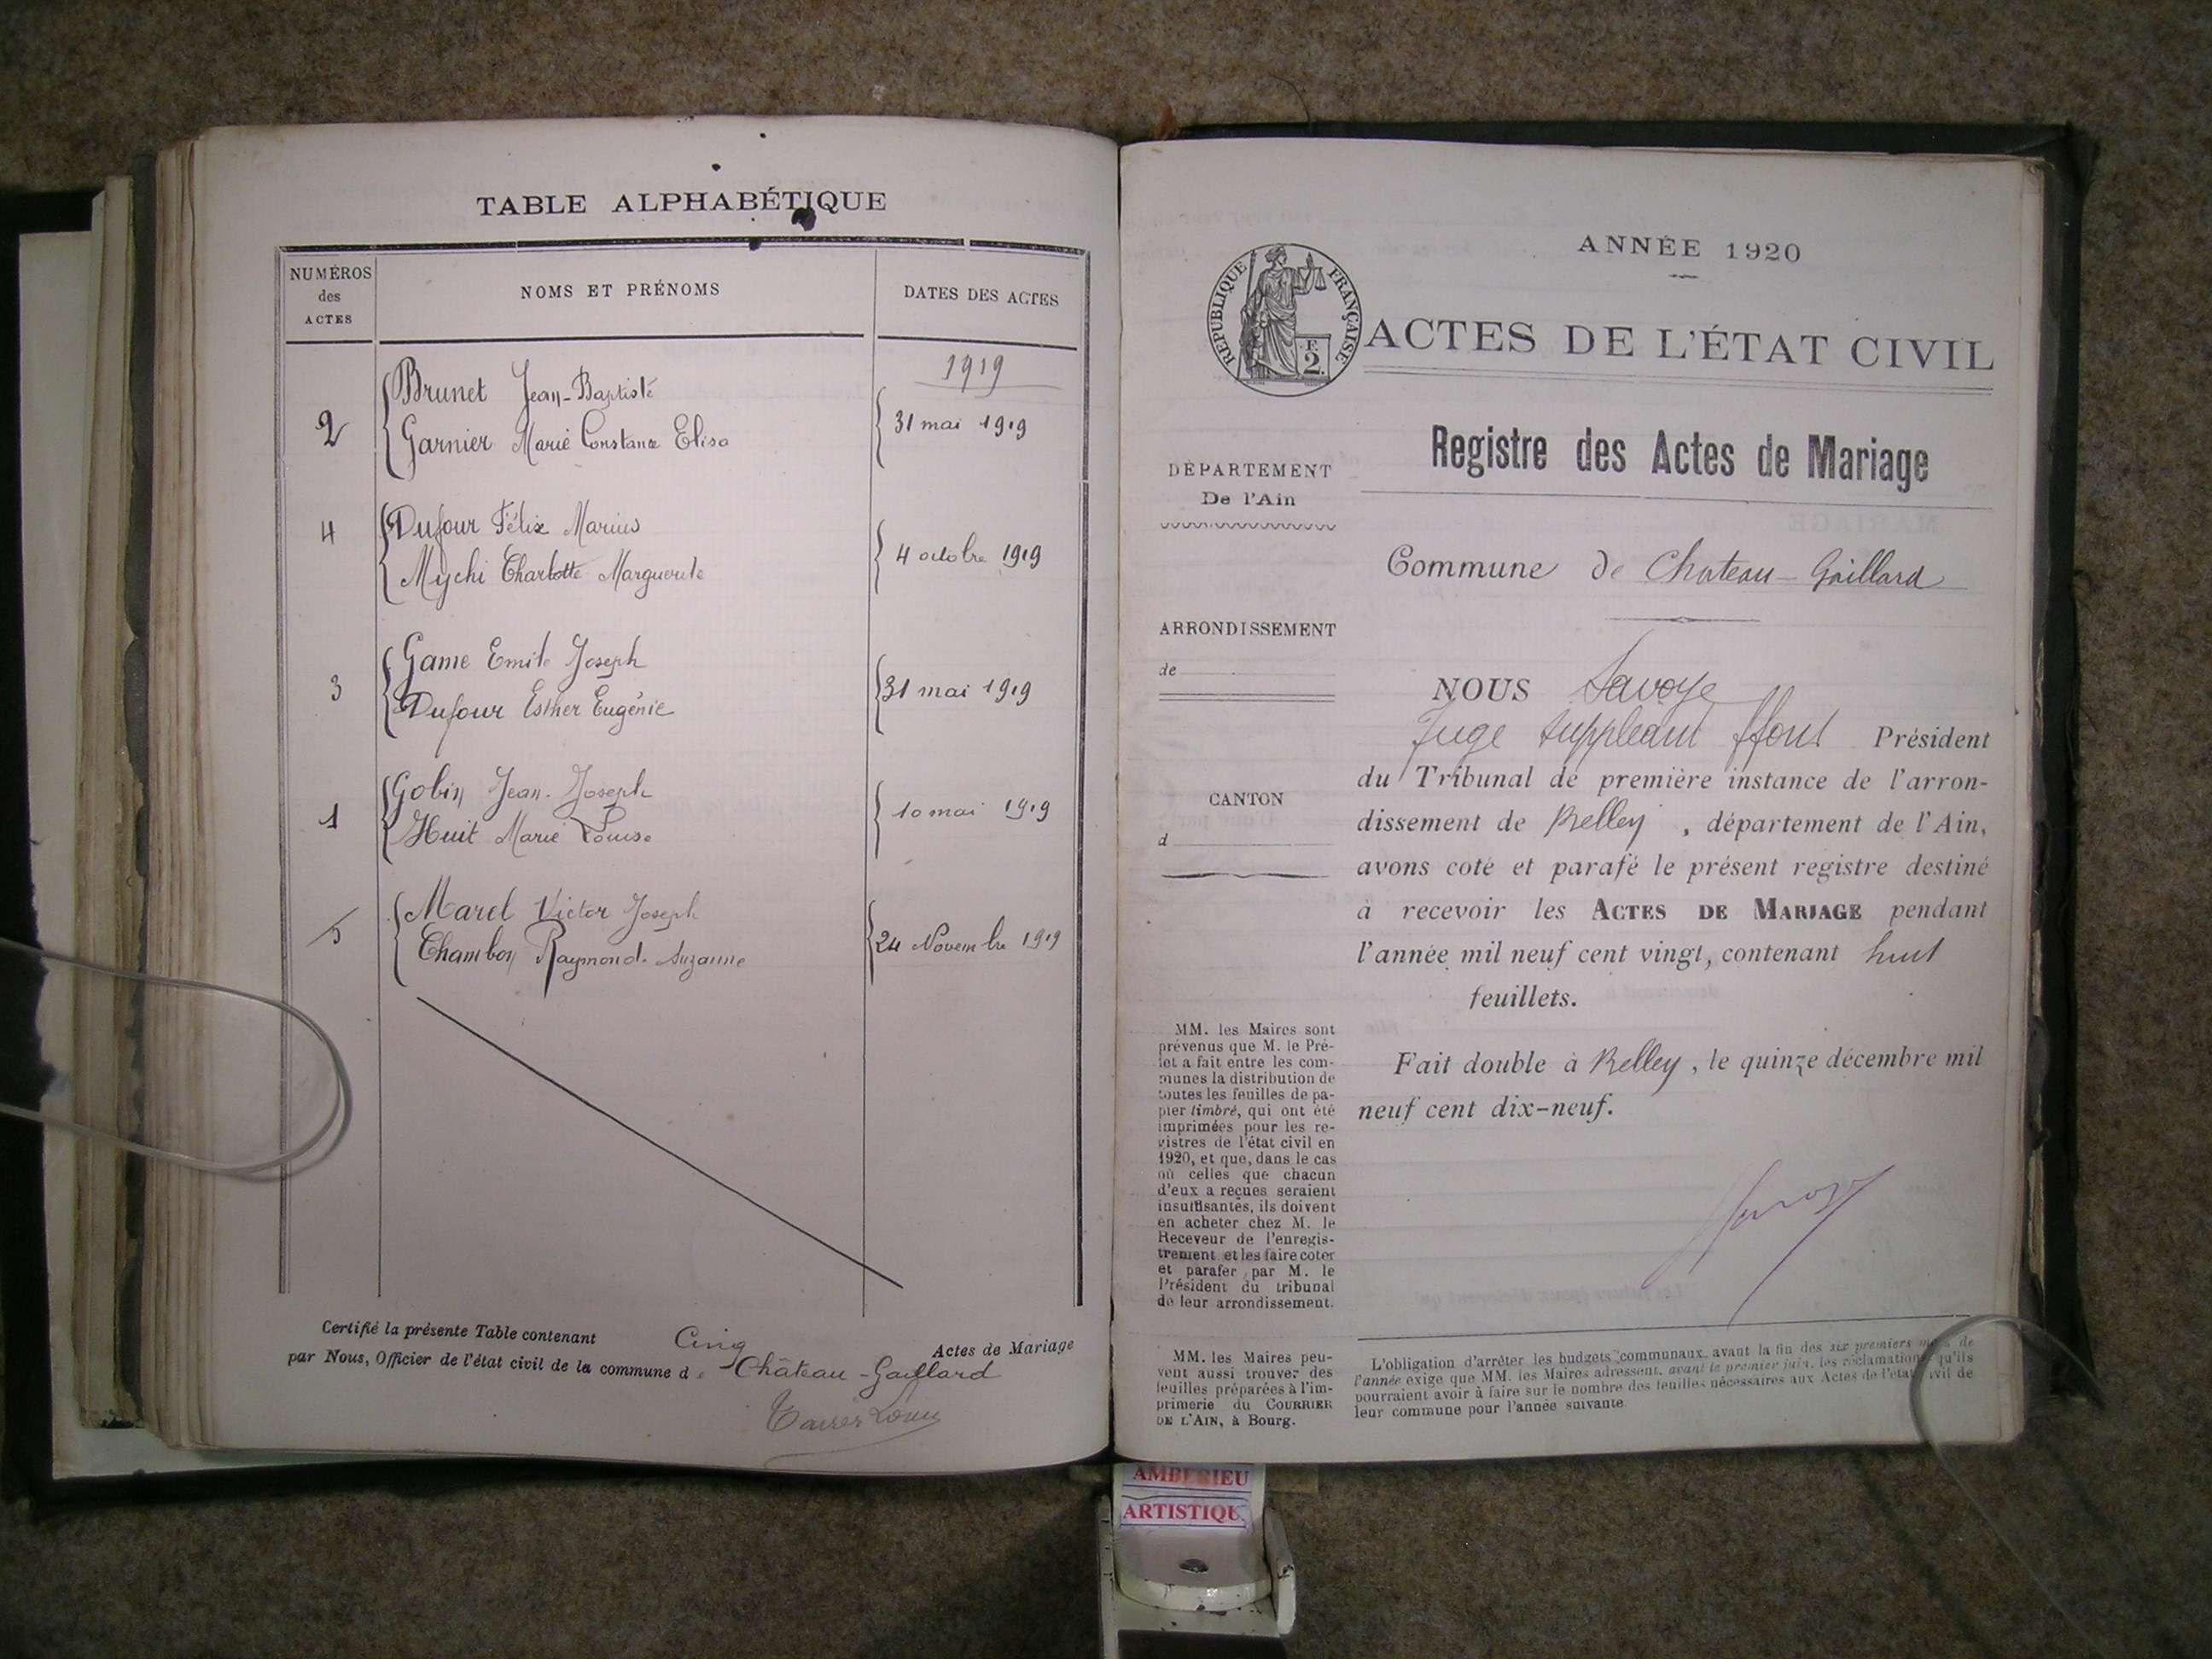 TABLE ALPHABÉTIQUE
NUMÉROS
des
ACTES
NOMS ET PRÉNOMS
DATES DES ACTES
1919
2
Brunet Jean-Baptiste
Garnier Marie Constance Elisa
31 mai 1919
4
Dufour Félix Marius
Mychi Charlotte Marguerite
4 octobre 1919
3
Game Emile Joseph
Dufour Esther Eugénie
31 mai 1919
1
Gobin Jean-Joseph
Huit Marie Louise
10 mai 1919
5
Marel Victor Joseph
Chambon Raymonde Suzanne
24 Novembre 1919
Certifié la présente Table contenant Cinq Actes de Mariage
par Nous, Officier de l'état civil de la commune de Château-Gaillard
ANNÉE 1920
RÉPUBLIQUE FRANÇAISE
F.
2.
ACTES DE L'ÉTAT CIVIL
Registre des Actes de Mariage
DÉPARTEMENT
De l'Ain
Commune de Chateau-Gaillard
ARRONDISSEMENT
de
CANTON
d
NOUS Savoye
Juge suppléant ffons Président
du Tribunal de première instance de l'arron-
dissement de Belley , département de l'Ain,
avons coté et parafé le présent registre destiné
à recevoir les ACTES DE MARIAGE pendant
l'année mil neuf cent vingt, contenant huit
feuillets.
Fait double à Belley, le quinze décembre mil
neuf cent dix-neuf.
MM. les Maires sont
prévenus que M. le Pré-
fet a fait entre les com-
munes la distribution de
toutes les feuilles de pa-
pier timbré, qui ont été
imprimées pour les re-
gistres de l'état civil en
1920, et que, dans le cas
où celles que chacun
d'eux a reçues seraient
insuffisantes, ils doivent
en acheter chez M. le
Receveur de l'enregis-
trement et les faire coter
et parafer par M. le
Président du tribunal
de leur arrondissement.
MM. les Maires peu-
vent aussi trouver des
feuilles préparées à l'im-
primerie du COURRIER
DE L'AIN, à Bourg.
L'obligation d'arrêter les budgets communaux avant la fin des six premiers mois de
l'année exige que MM. les Maires adressent, avant le premier juin, les réclamations qu'ils
pourraient avoir à faire sur le nombre des feuilles nécessaires aux Actes de l'état civil de
leur commune pour l'année suivante.
AMBERIEU
ARTISTIQUE